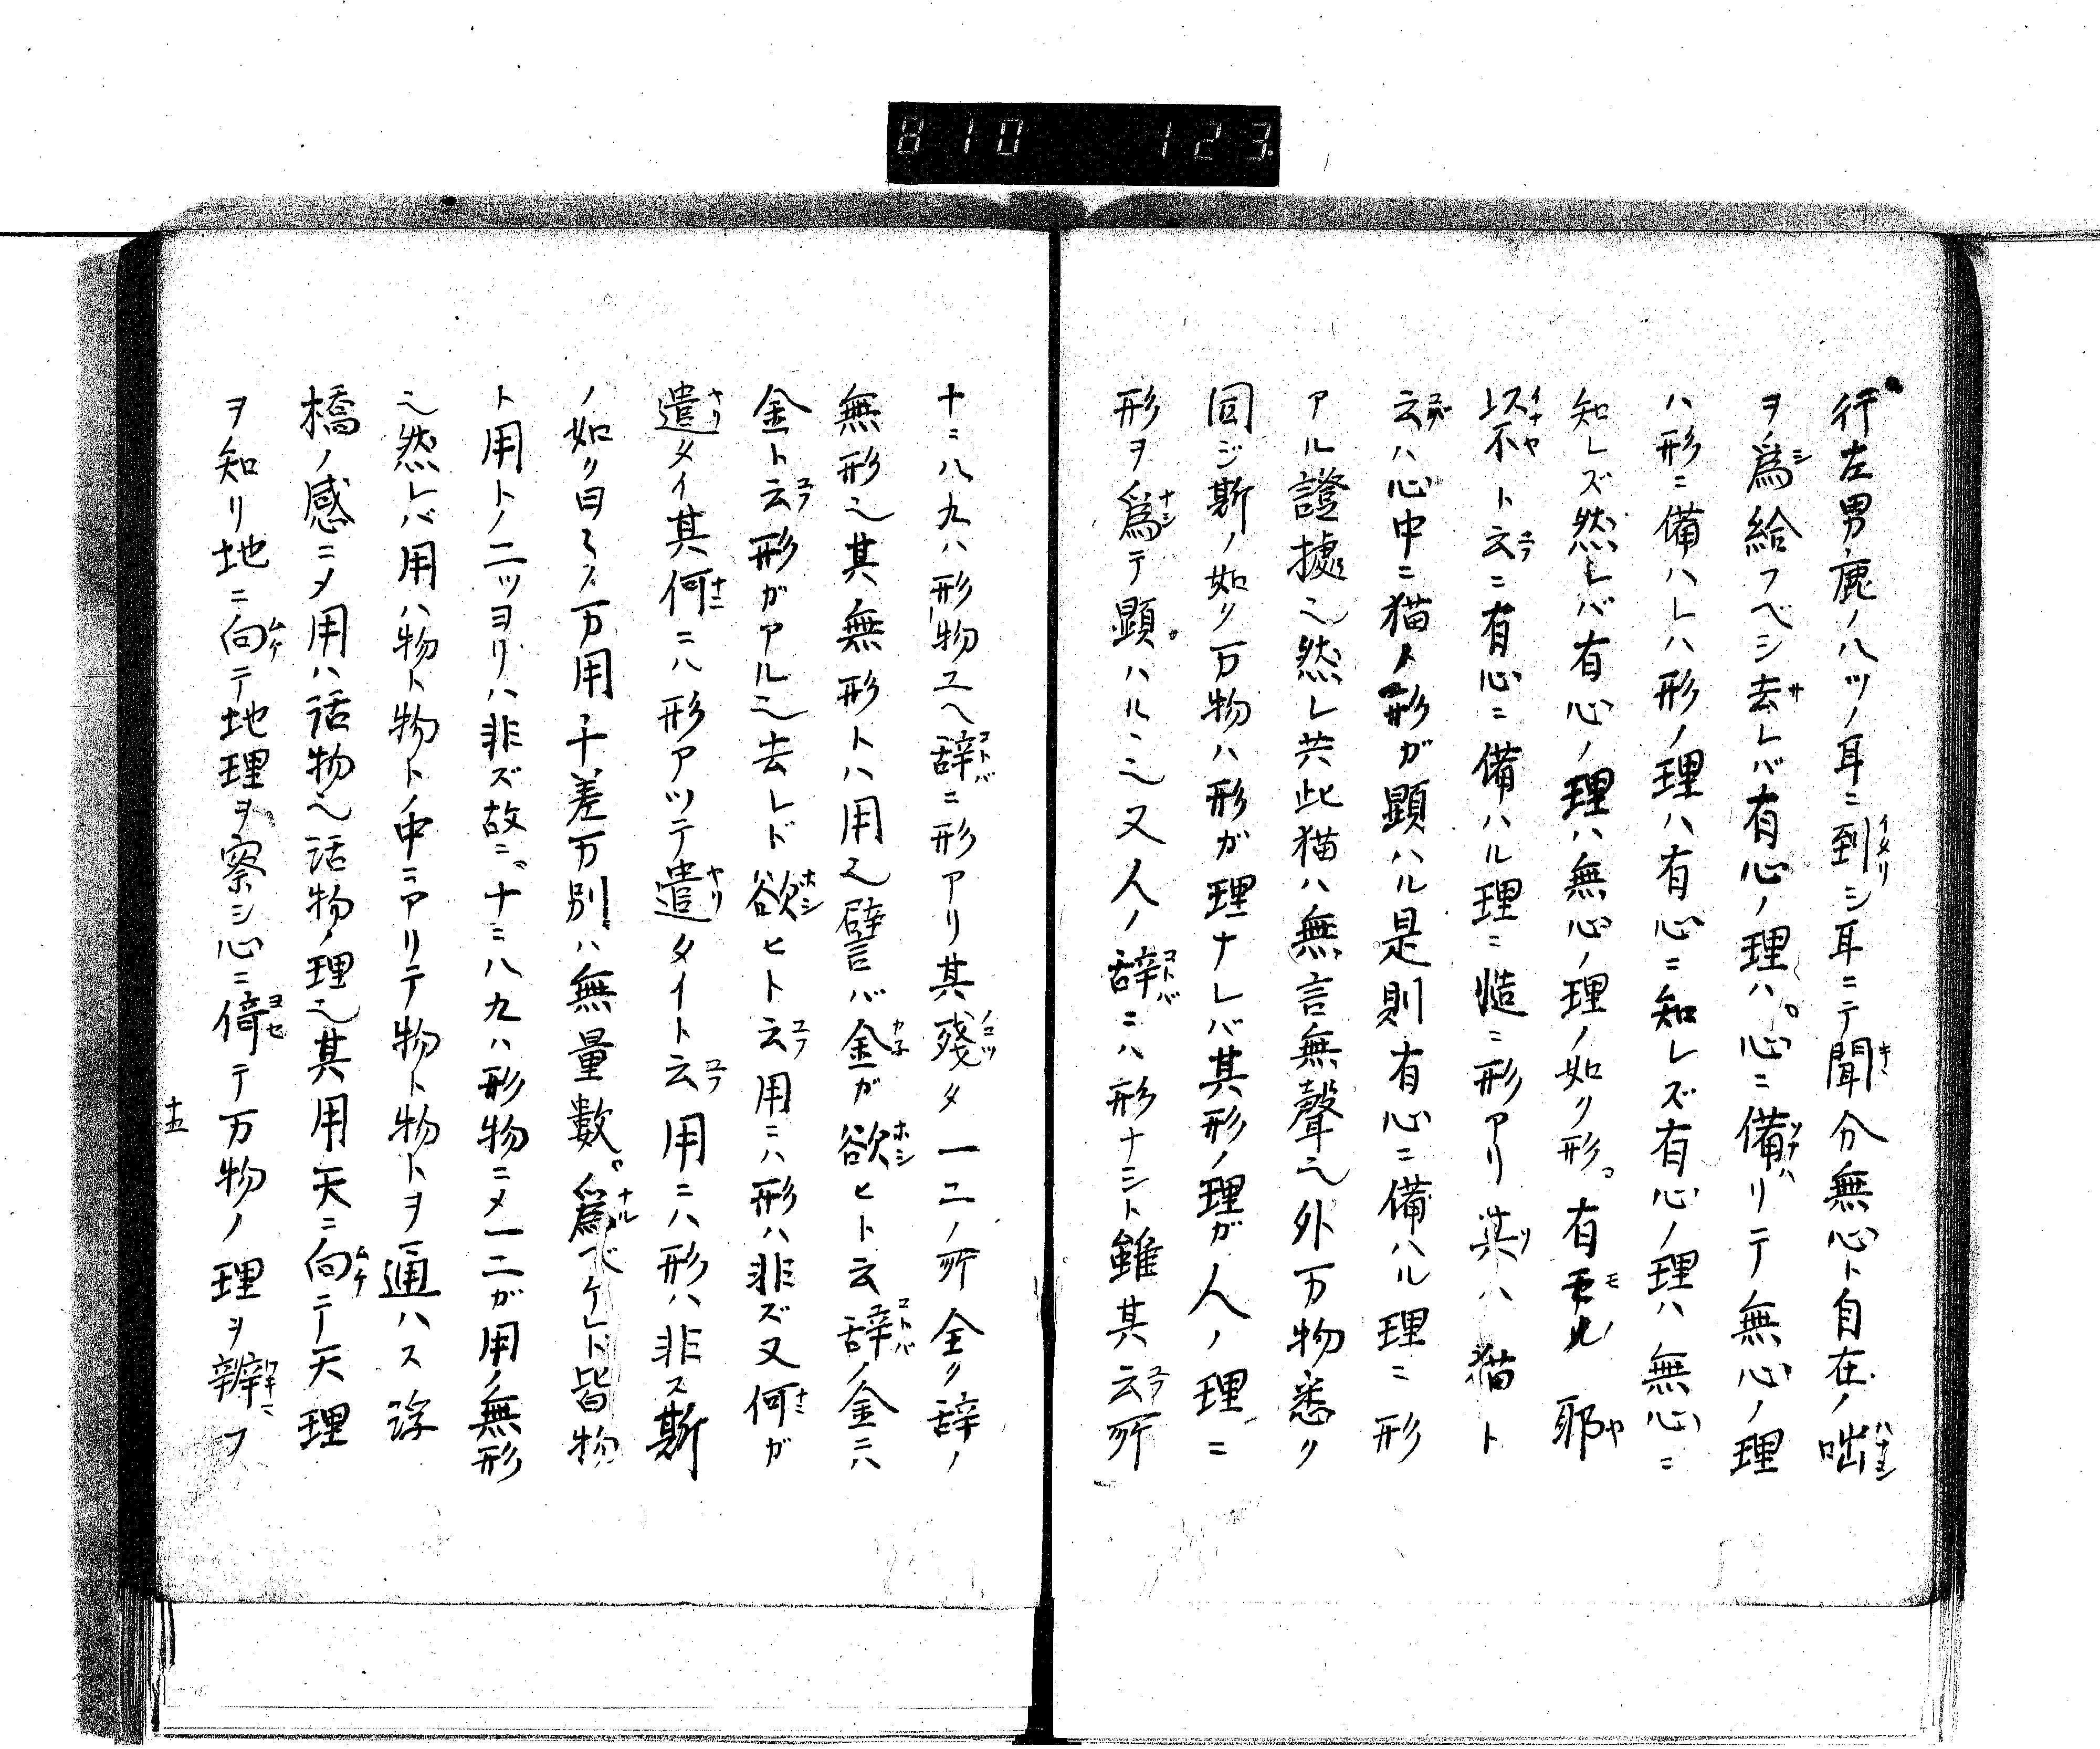 810 123
行左男鹿ノ八ツノ耳ニ到シ耳ニテ聞分無心ト自在ノ咄
ヲ為給フベシ去レバ有心ノ理ハ心ニ備リテ無心ノ理
ハ形ニ備ハレハ形ノ理ハ有心ニ知レズ有心ノ理ハ無心ニ
知レズ然レバ有心ノ理ハ無心ノ理ノ如ク形有 耶
不ト云ニ有心ニ備ハル理ニ慥ニ形アリ ハ猫ト
云ハ心中ニ猫ノ形ガ顕ハル是則有心ニ備ハル理ニ形
アル證據也然レ共此猫ハ無言無聲也外万物悉ク
同ジ斯ノ如ク万物ハ形ガ理ナレバ其形ノ理ガ人ノ理ニ
形ヲ為テ顕ハルヽ也又人ノ辞ニハ形ナシト雖其云所
十ニ八九ハ形物ユヘ辞ニ形アリ其残タ一二ノ所全ク辞ノ
無形也其無形トハ用也譬バ金ガ欲ヒト云辞ノ金ニハ
金ト云形ガアル也去レド欲ヒト云用ニハ形ハ非ズ又何ガ
遣タイ其何ニハ形アツテ遣タイト云用ニハ形ハ非ス斯
ノ如ク日々ノ万用千差万別ハ無量數為ベケレド皆物
ト用トノ二ツヨリハ非ズ故ニ十ニ八九ハ形物ニメ一二ガ用ノ無形
也然レバ用ハ物ト物トノ中ニアリテ物ト物トヲ通ハス浮
橋ノ感ニメ用ハ活物也活物ノ理也其用天ニ向テ天理
ヲ知リ地ニ向テ地理ヲ察シ心ニ倚テ万物ノ理ヲ辨フ
十五